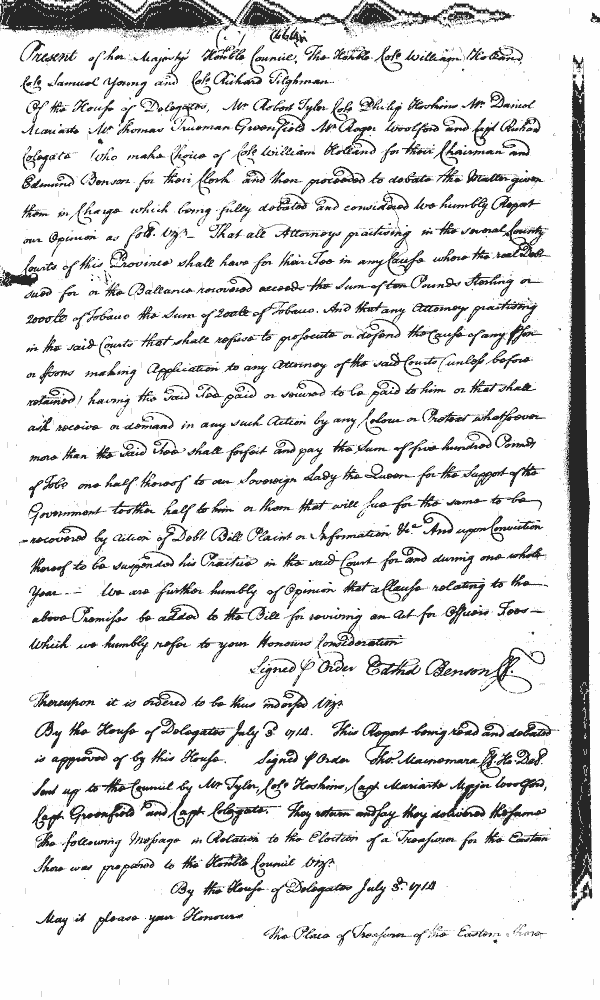 (464)
Present of her Majestys Honble Council, The Honble Colo William Holland
Colo Samuel Young and Colo Richard Tilghman
Of the House of Delegates, Mr Robert Tyler Colo Philip Hoskins Mr Daniel
Mariarte Mr Thomas Trueman Greenfield Mr Roger Woolford and Capt Richard
Colegate Who make Choice of Colo William Holland for their Chairman and
Edmund Benson for their Clerk and then proceeded to debate the Matter given
them in Charge which being fully debated and considered We humbly Report
our Opinion as foll. Vizt. That all Attorneys practising in the several County
Courts of this Province shall have for their Fee in any Cause where the real Debt
sued for or the Ballance recovered exceeds the Sum of ten Pounds Sterling or
2000lb of Tobacco the Sum of 200lb of Tobacco. And that any Attorney practising
in the said Courts that shall refuse to prosecute or defend the Cause of any Pson
or Psons making Application to any Attorney of the said Courts (unless before
retained) having the said Fee paid or secured to be paid to him or that shall
ask receive or demand in any such Action by any Colour or Pretext whatsoever
more than the said Fee shall forfeit and pay the Sum of five hundred Pounds
of Tobo one half thereof to our Sovereign Lady the Queen for the Support of the
Government tother half to him or them that will sue for the same to be
recovered by Action of Debt Bill Plaint or Information &ca And upon Conviction
thereof to be suspended his Practice in the said Court for and during one whole
Year — We are further humbly of Opinion that a Clause relating to the
above Premises be added to the Bill for reviving an Act for Officers Fees —
Which we humbly refer to your Honours Consideration
Signed P Order Edmd Benson Cl.
Thereupon it is ordered to be thus indorsed Vizt
By the House of Delegates July 3d 1714. This Report being read and debated
is approved of by this House. Signed P Order Thos Macnemara Cl. Ho. Del.
Sent up to the Council by Mr Tyler, Colo Hoskins, Capt Mariarte Major Woolford,
Capt Greenfield and Capt Colegate. They return and say they delivered the same
The following Message in Relation to the Election of a Treasurer for the Eastern
Shore was prepared to the Honble Council Vizt
By the House of Delegates July 3d. 1714
May it please your Honours
The Place of Treasurer of the Eastern Shore